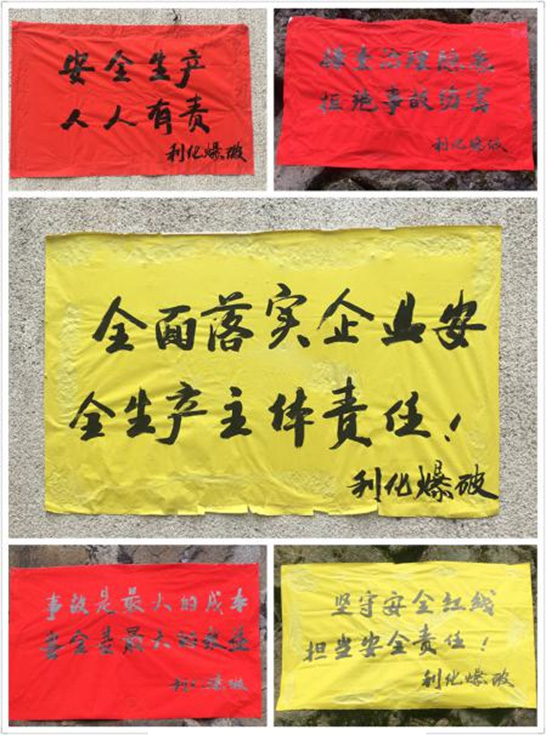 安全生产
人人有责
利化爆破
排查治理隐患
拒绝事故伤害
利化爆破
全面落实企业安
全生产主体责任！
利化爆破
事故是最大的成本
安全是最大的效益
利化爆破
坚守安全红线
担当安全责任！
利化爆破